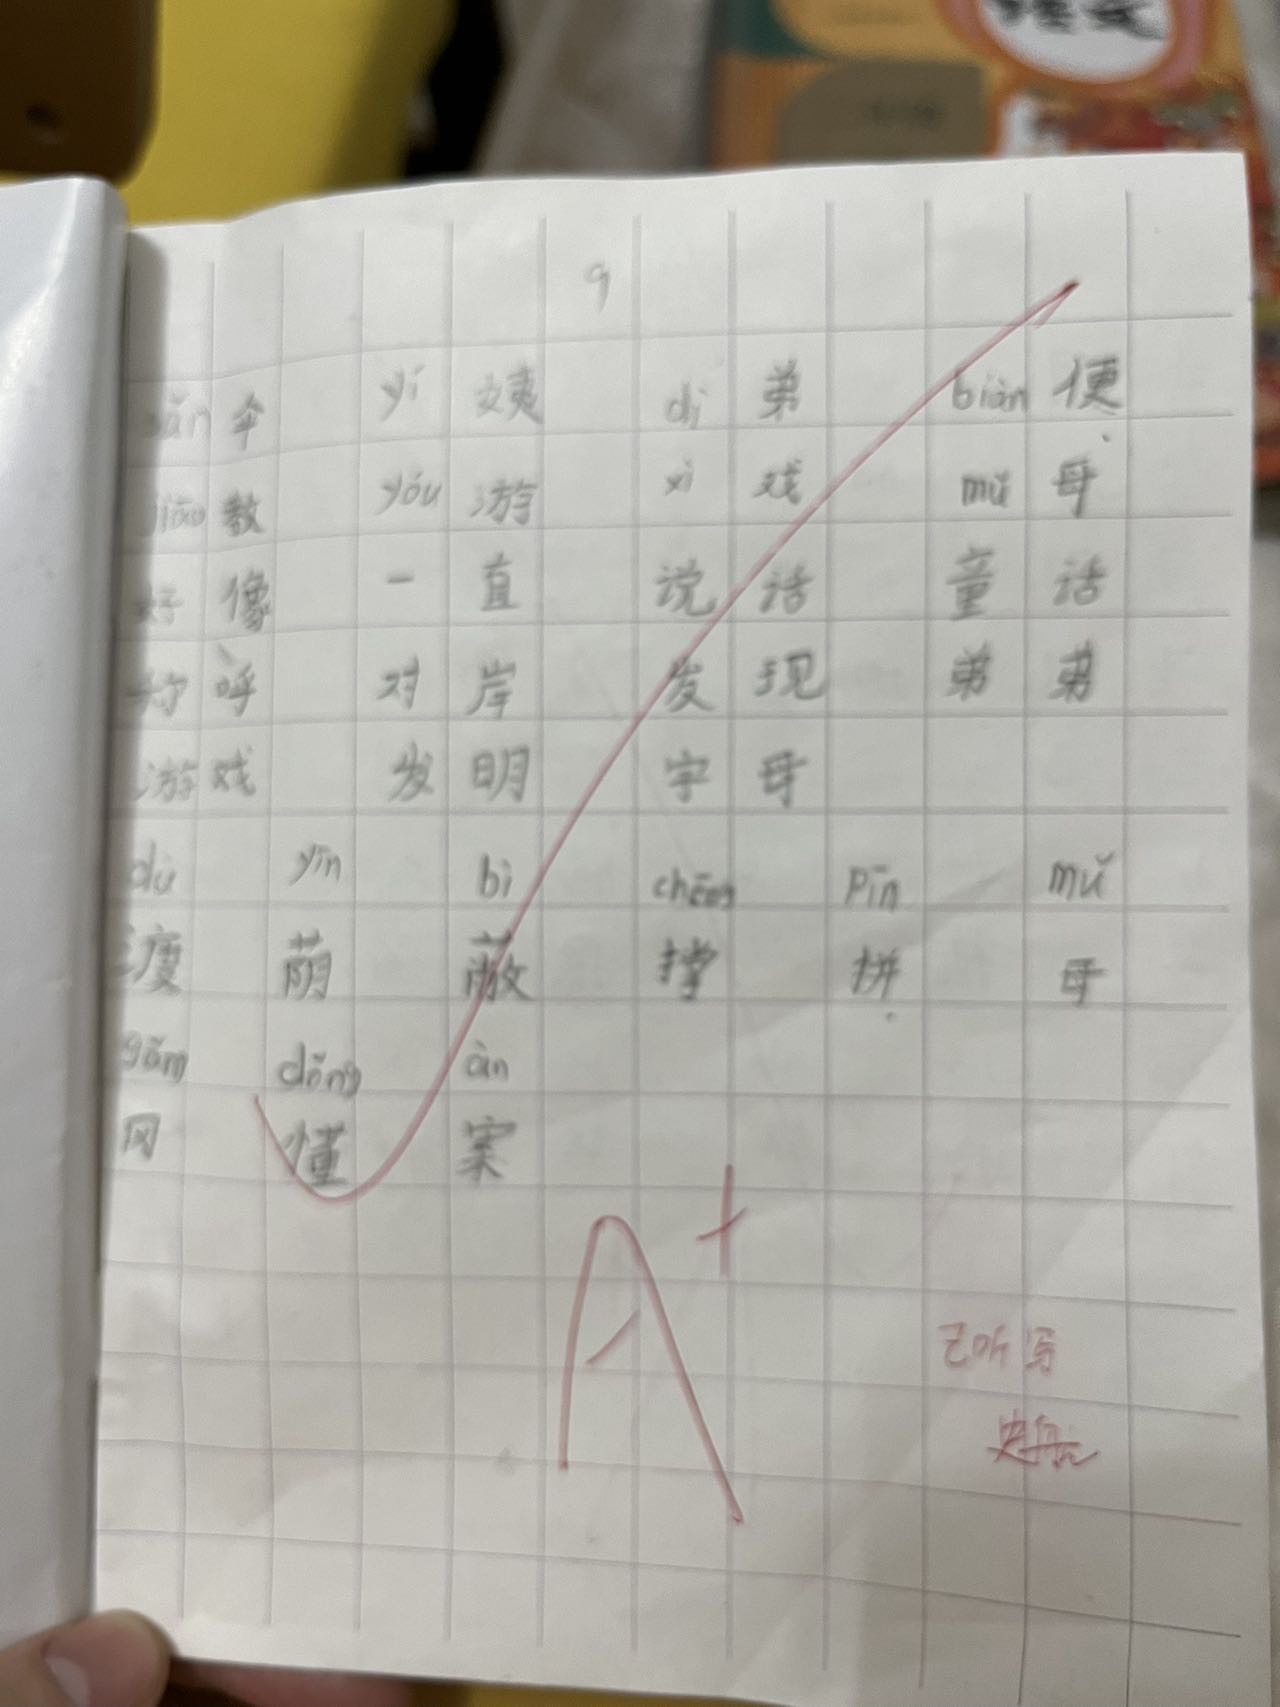 语文
9
伞 yí 姨 dì 弟 biàn 便
jiāo 教 yóu 游 xì 戏 mǔ 母
好像 一直 说话 童话
称呼 对岸 发现 弟弟
游戏 发明 字母
dù yīn bì chēng pīn mǔ
度 荫 蔽 撑 拼 母
gāng dǒng àn
冈 懂 案
A+
已听写